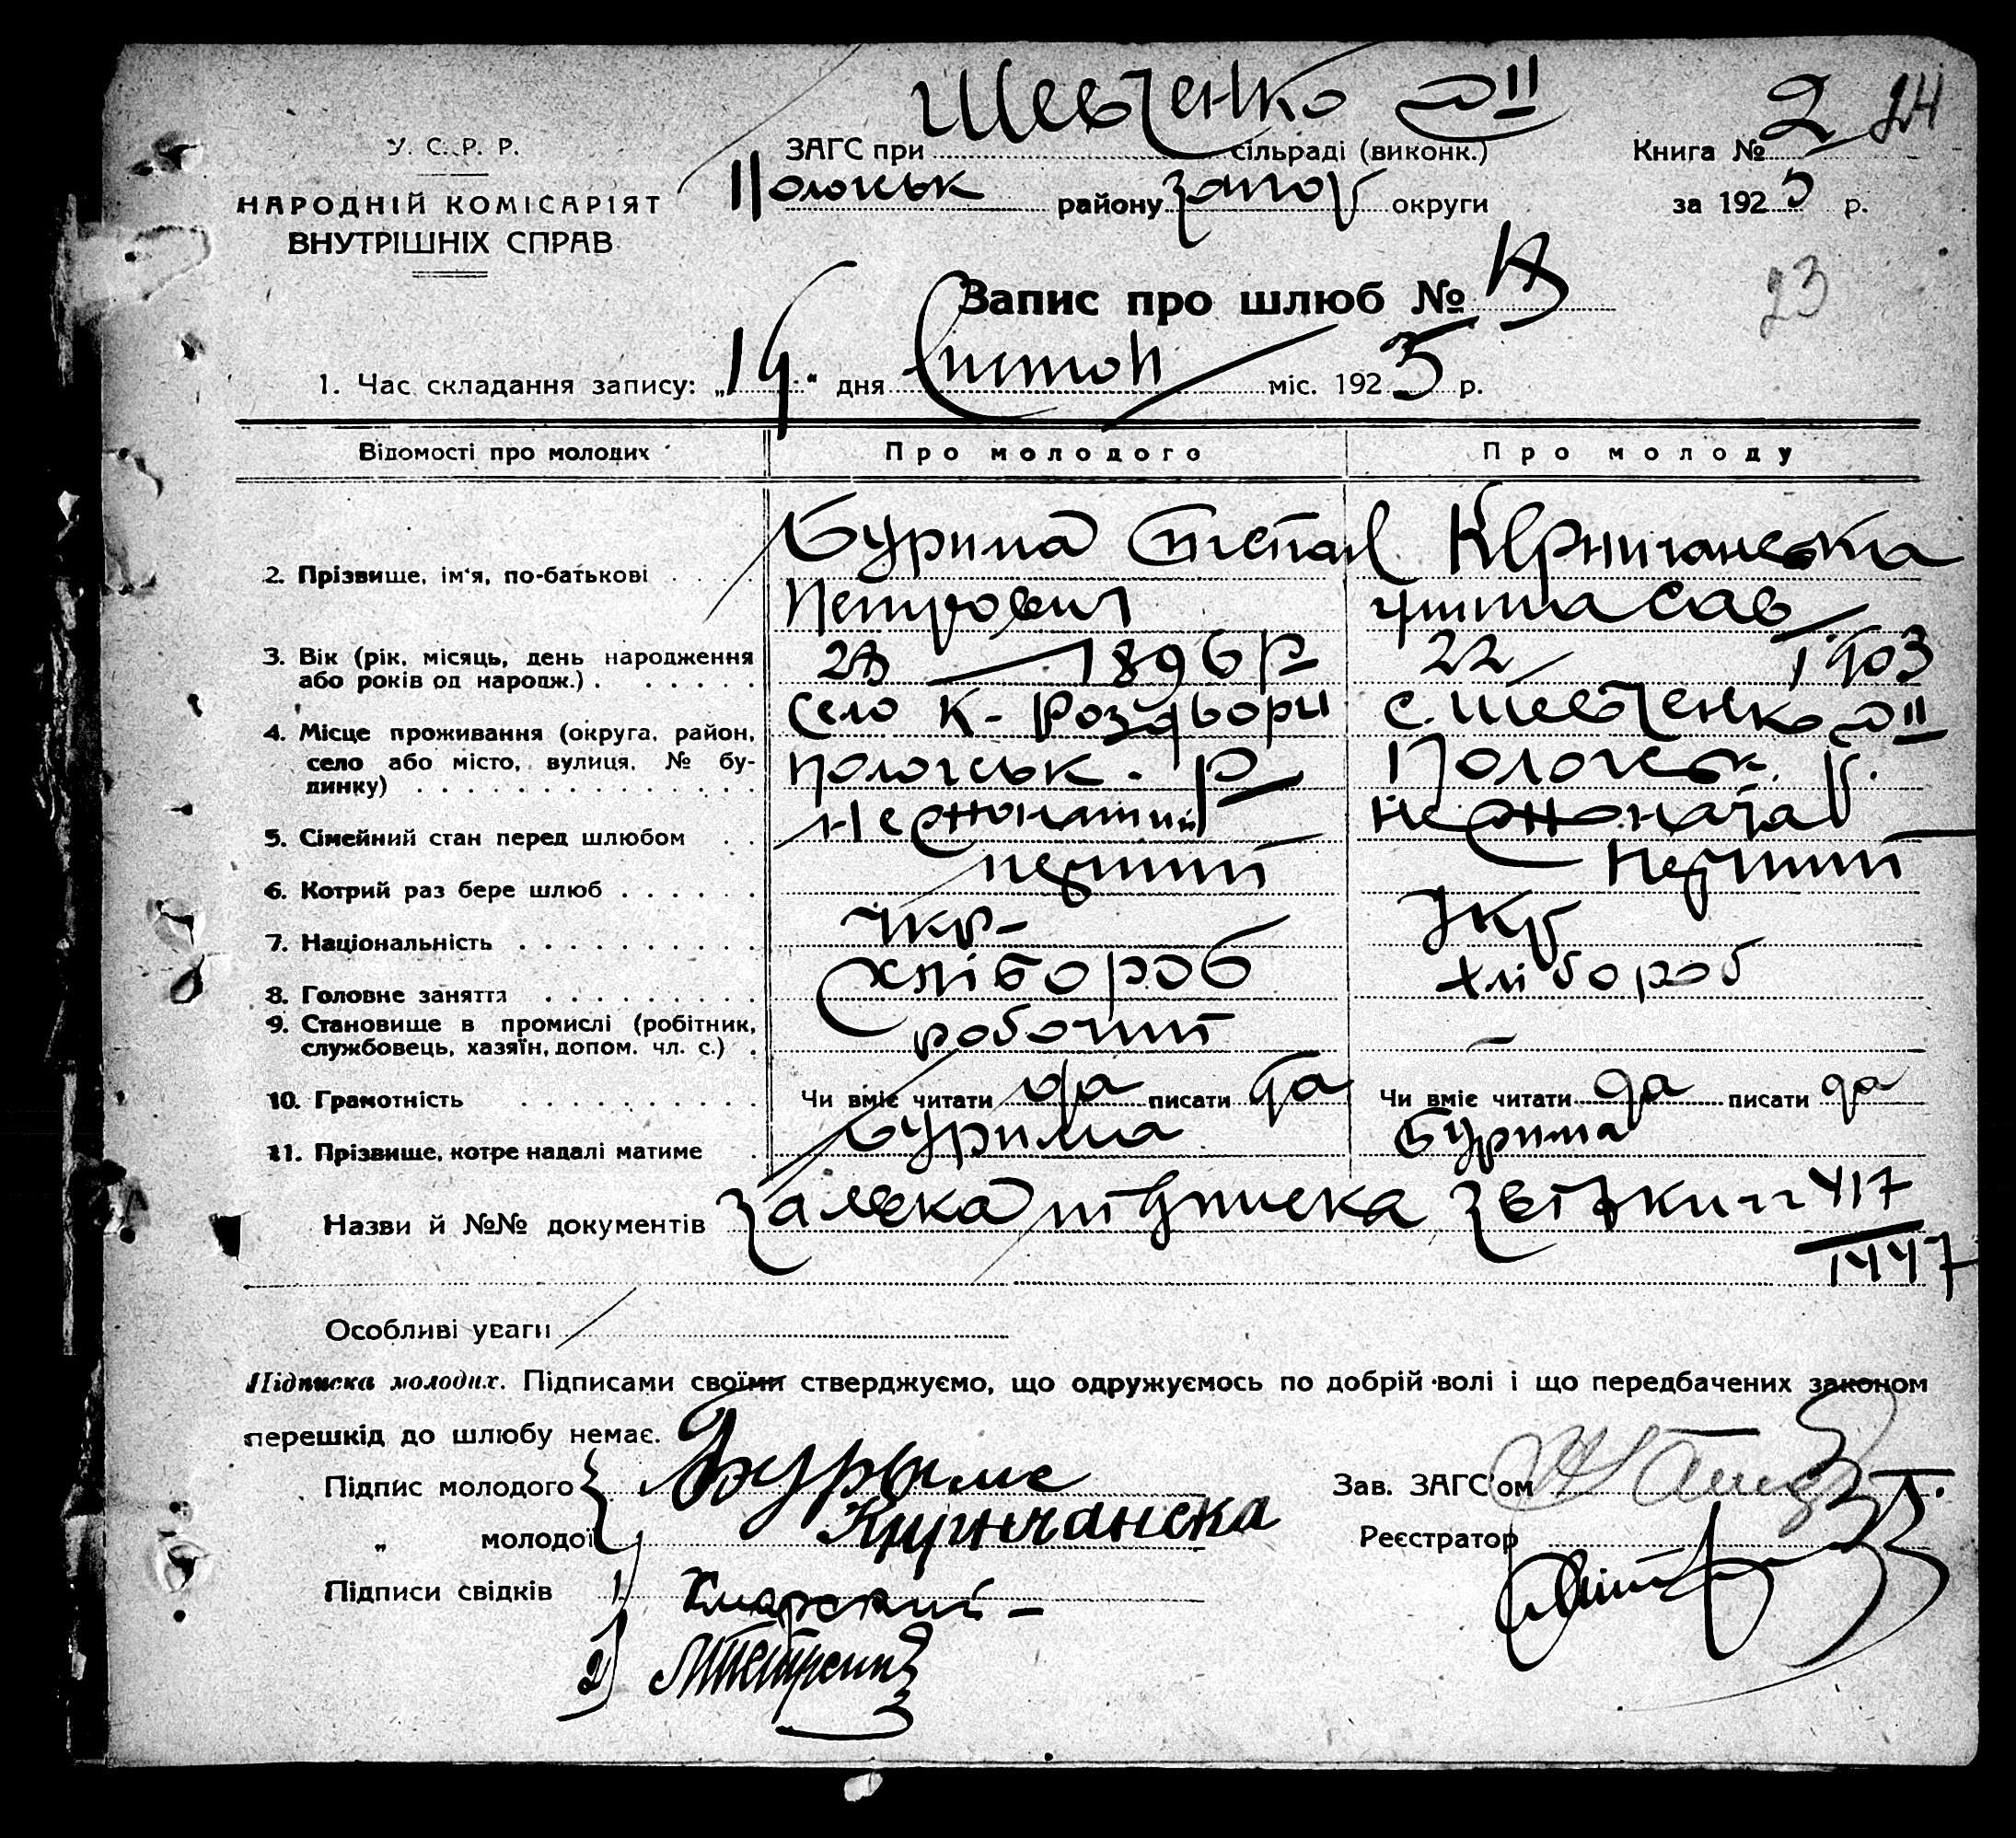 Шевченко II
24
У. С. Р. Р.
ЗАГС при сільраді (виконк.)
Книга № 2
НАРОДНІЙ КОМІСАРІЯТ
Пологськ району Запор округи
за 1925 р.
ВНУТРІШНІХ СПРАВ
Запис про шлюб №
23
1. Час складання запису: „19" дня Листоп міс. 1925 р.
Відомості про молодих
Про молодого
Про молоду
2. Прізвище, ім'я, по-батькові
Бурима Степан
Петрович
Сав
3. Вік (рік, місяць, день народження
або років од народж.)
1896 р
22 1903
4. Місце проживання (округа, район,
село або місто, вулиця, № бу-
динку)
Село К-Роздори
Пологськ. р
с. Шевченко II
Пологськ. р.
5. Сімейний стан перед шлюбом
Нежонатий
Нежоната
6. Котрий раз бере шлюб
Первий
Первий
7. Національність
Укр-
Укр
8. Головне заняття
Хлібороб
Хлібороб
9. Становище в промислі (робітник,
службовець, хазяїн, допом. чл. с.)
робочий
-
10. Грамотність
Чи вміє читати да писати да
Чи вміє читати да писати да
11. Прізвище, котре надалі матиме
Бурима
Бурима
Назви й №№ документів
417
1447
Особливі уваги
Підписка молодих. Підписами своїми стверджуємо, що одружуємось по добрій волі і що передбачених законом
перешкід до шлюбу немає.
Підпис молодого
Бурыма
Зав. ЗАГС'ом
„ молодої
Кринчанска
Реєстратор
Підписи свідків 1)
2)